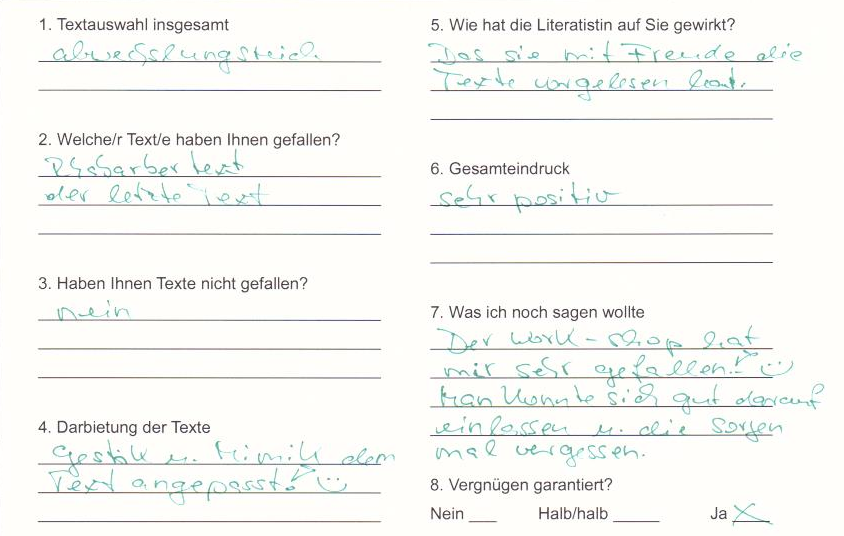 1. Textauswahl insgesamt
abwechslungsreich
2. Welche/r Text/e haben Ihnen gefallen?
Rhabarber text
der letzte Text
3. Haben Ihnen Texte nicht gefallen?
nein
4. Darbietung der Texte
Gestik u. Mimik dem
Text angepasst! ☺
5. Wie hat die Literatistin auf Sie gewirkt?
Das sie mit Freude die
Texte vorgelesen hat.
6. Gesamteindruck
sehr positiv
7. Was ich noch sagen wollte
Der work-shop hat
mir sehr gefallen! ☺
Man konnte sich gut darauf
einlassen u. die Sorgen
mal vergessen.
8. Vergnügen garantiert?
Nein ___ Halb/halb _____ Ja X